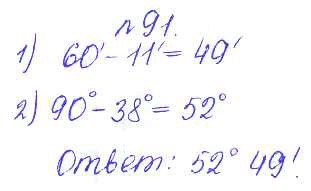 №91.
1) 60' - 11' = 49'
2) 90° - 38° = 52°
Ответ: 52° 49'.